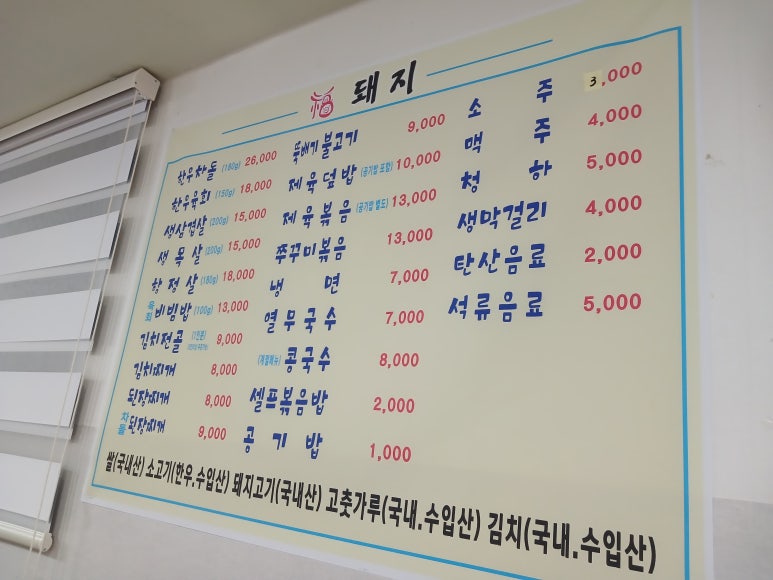 福 돼지
한우차돌 (180g) 26,000
한우육회 (150g) 18,000
생삼겹살 (200g) 15,000
생목살 (200g) 15,000
항정살 (180g) 18,000
육회비빔밥 (100g) 13,000
김치전골 (1인분) 9,000
김치찌개 8,000
된장찌개 8,000
차돌된장찌개 9,000
뚝배기불고기 9,000
제육덮밥 (공기밥 포함) 10,000
제육볶음 (공기밥 별도) 13,000
쭈꾸미볶음 13,000
냉면 7,000
열무국수 7,000
(계절메뉴) 콩국수 8,000
셀프볶음밥 2,000
공기밥 1,000
소주 3,000
맥주 4,000
청하 5,000
생막걸리 4,000
탄산음료 2,000
석류음료 5,000
쌀(국내산) 소고기(한우.수입산) 돼지고기(국내산) 고춧가루(국내.수입산) 김치(국내.수입산)